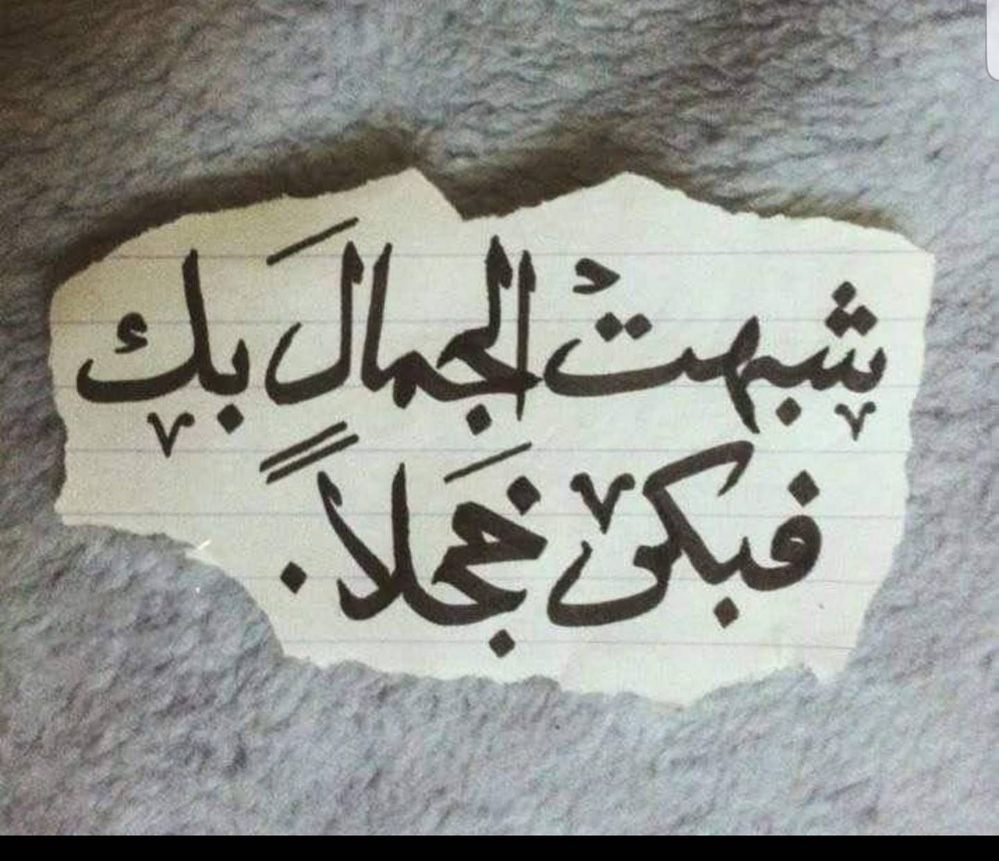 شبهتُ الجمالَ بك
فبكى خَجلاً.